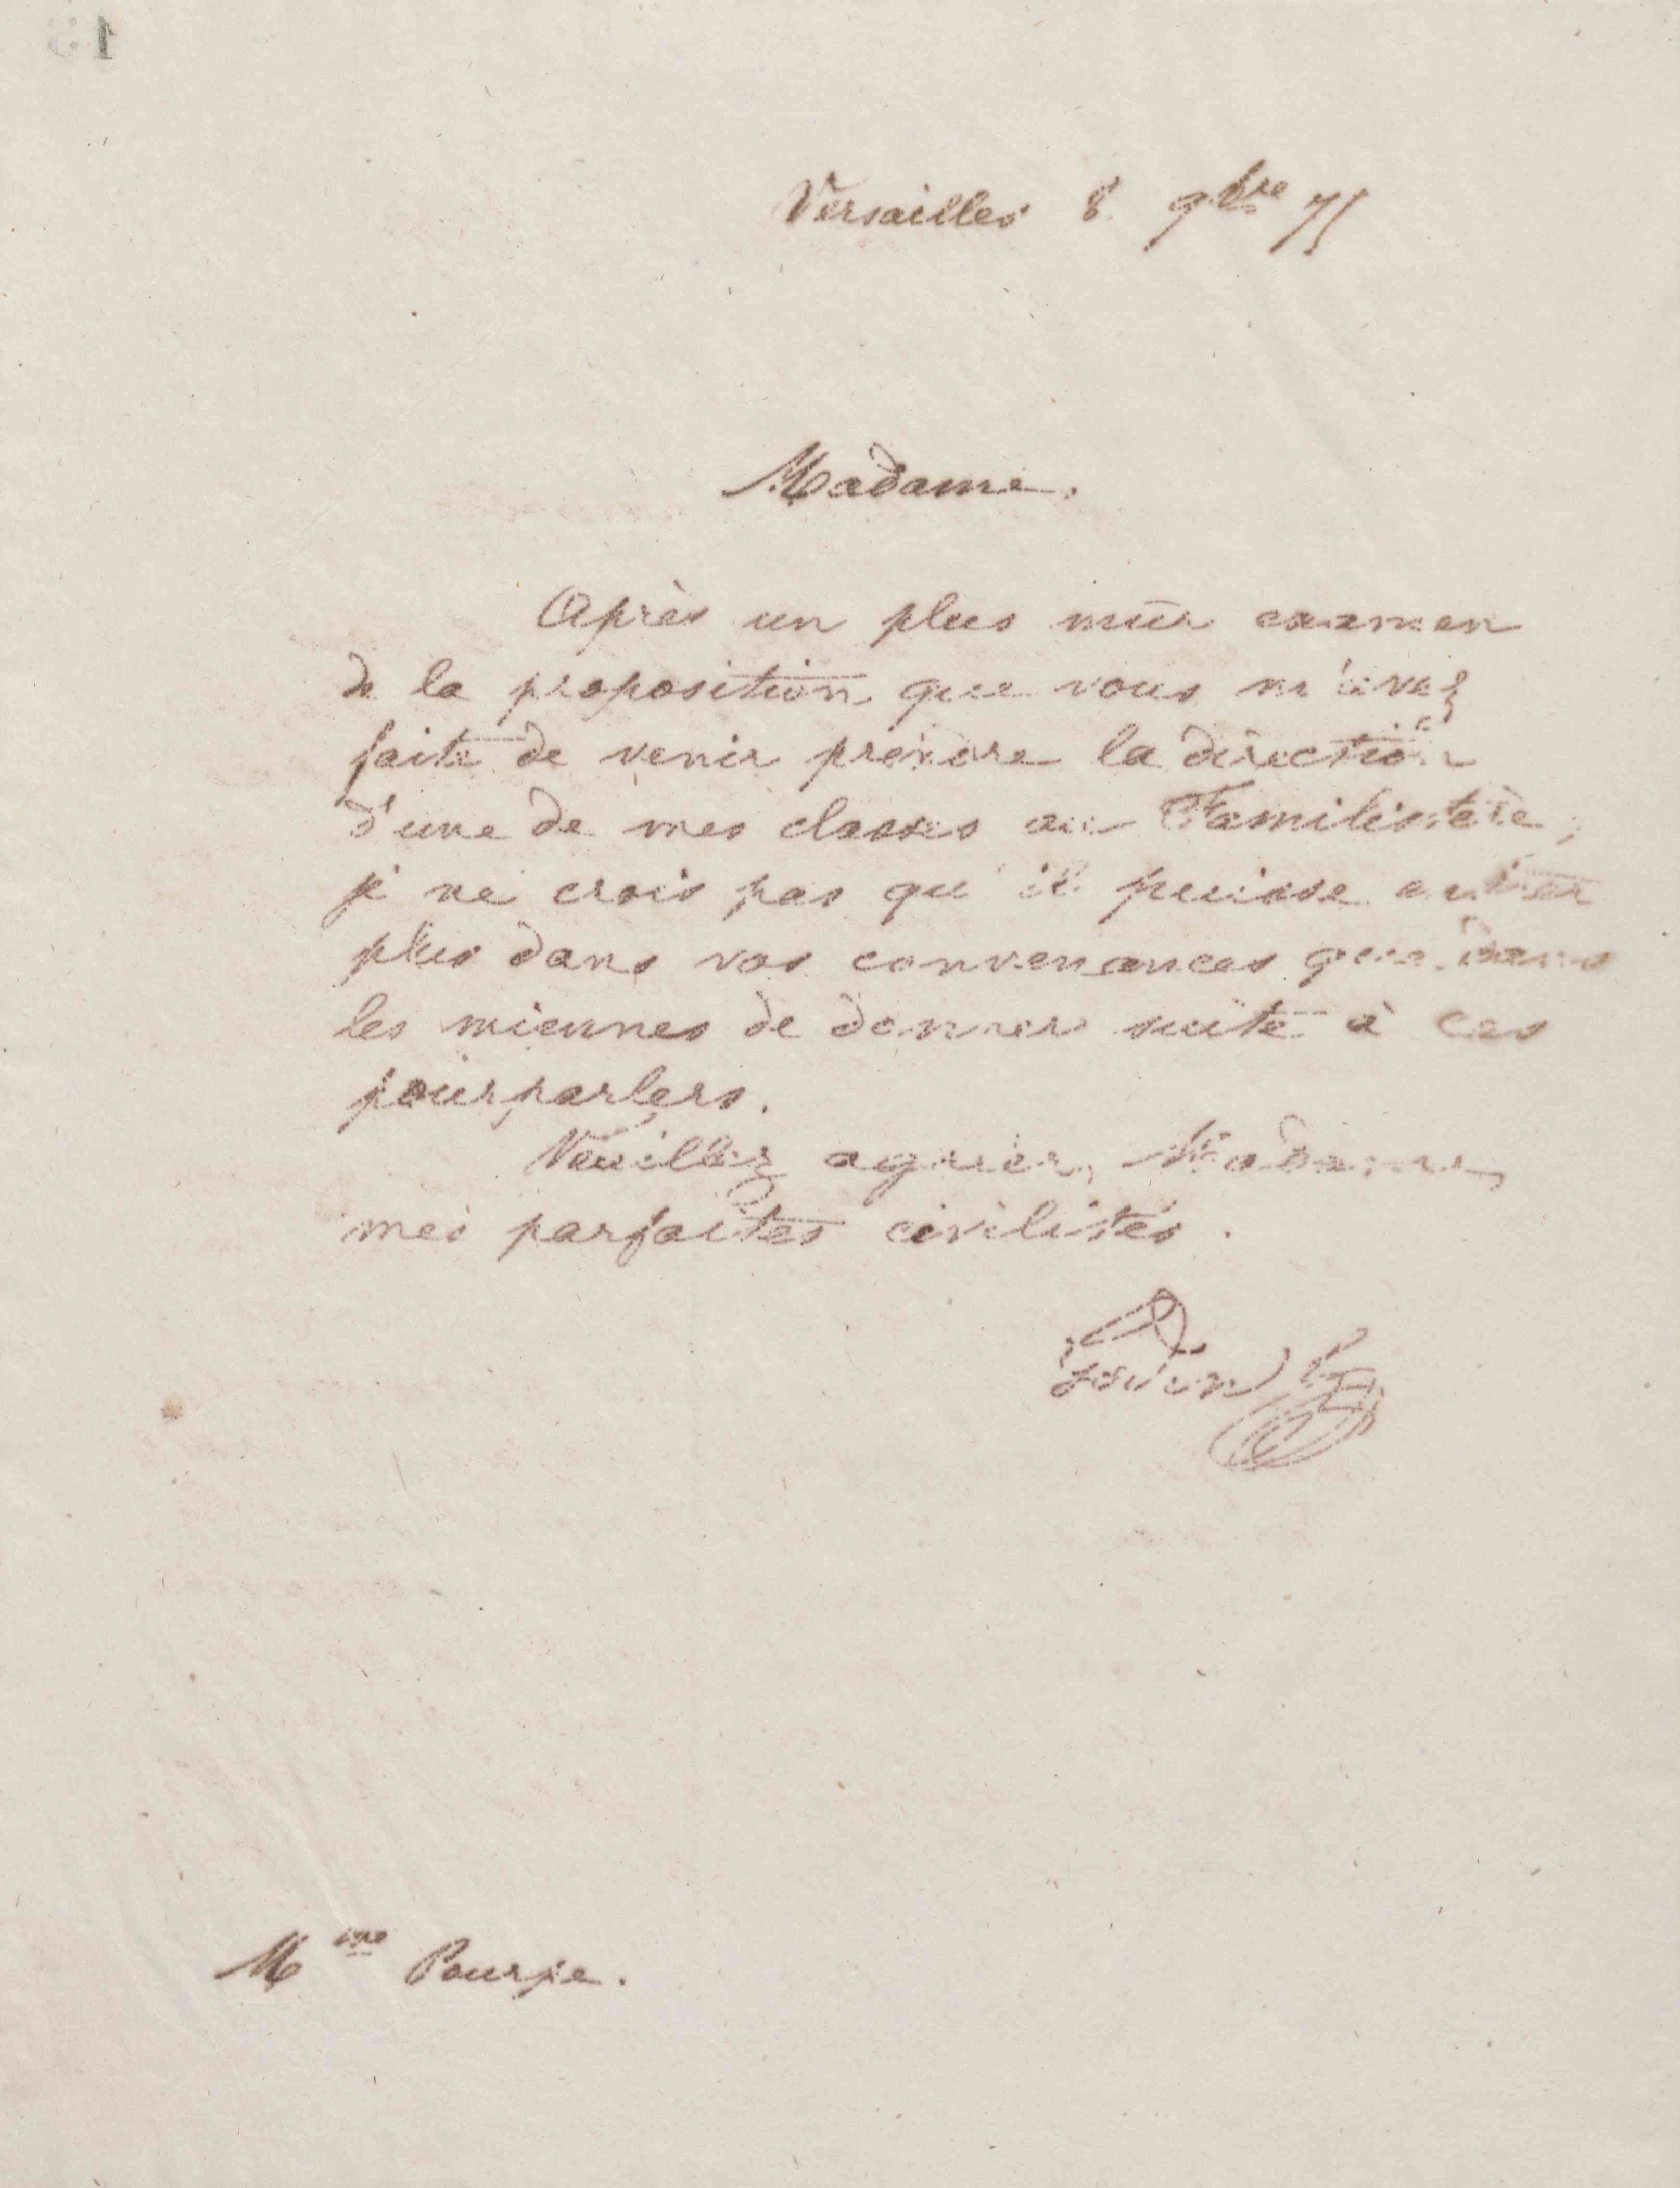 Versailles 8 9bre 75
Madame.
Après un plus mûr examen
de la proposition que vous m'avez
faite de venir prendre la direction
d'une de mes classes au Familistère,
je ne crois pas qu'il puisse entrer
plus dans vos convenances que dans
les miennes de donner suite à ces
pourparlers.
Veuillez agréer, Madame,
mes parfaites civilités.
Godin
Mme Pourpe.